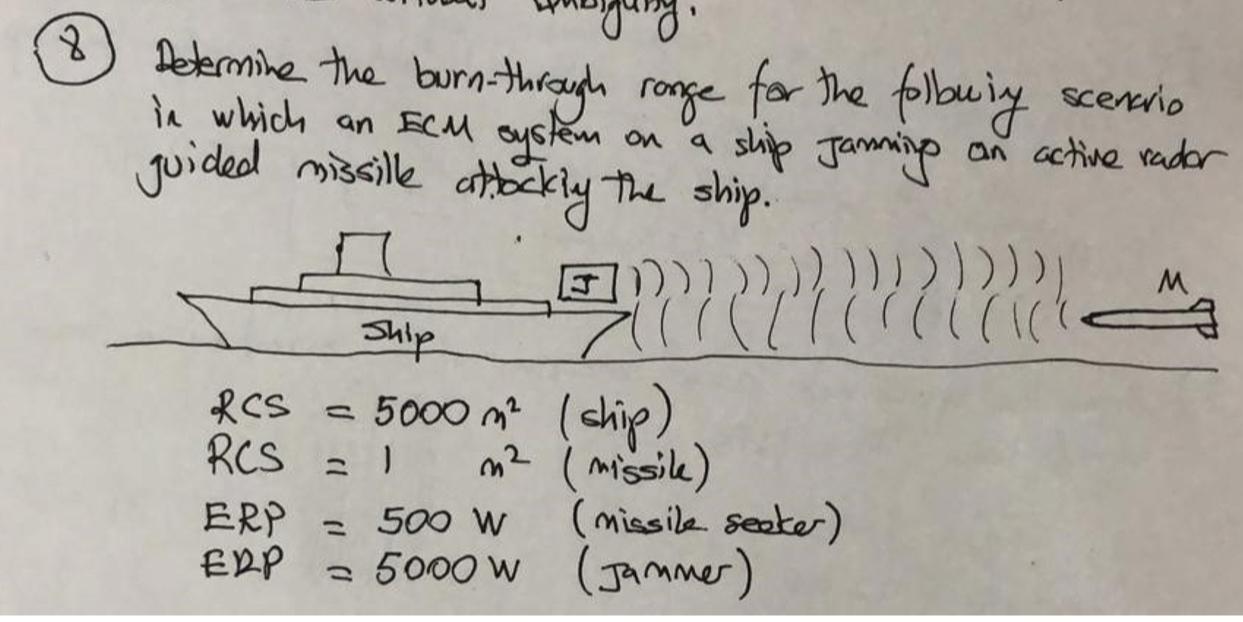 ambiguity.
8 Determine the burn-through range for the following scenario
in which an ECM system on a ship Jamming an active radar
guided missille attackiy the ship.
J
M
Ship
RCS = 5000 m² (ship)
RCS = 1 m² (missile)
ERP = 500 W (missile seeker)
ERP = 5000 W (Jammer)